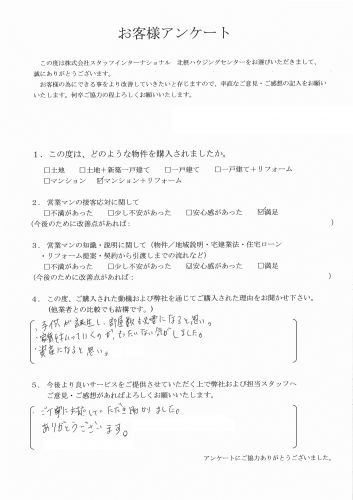 お客様アンケート
この度は株式会社スタッフインターナショナル　北摂ハウジングセンターをお選びいただきまして、
誠にありがとうございます。
お客様の為にできる事をより改善していきたいと存じますので、率直なご意見・ご感想の記入をお願い
いたします。何卒ご協力の程よろしくお願いいたします。
１．この度は、どのような物件を購入されましたか。
□土地　□土地＋新築一戸建て　□一戸建て　□一戸建て＋リフォーム
□マンション　☑マンション＋リフォーム
２．営業マンの接客応対に関して
□不満があった　□少し不安があった　□安心感があった　☑満足
(今後のために改善点があれば：　)
３．営業マンの知識・説明に関して（物件／地域説明・宅建業法・住宅ローン・
リフォーム提案・契約から引渡しまでの流れなど）
□不満があった　□少し不安があった　□安心感があった　☑満足
(今後のために改善点があれば：　)
４．この度、ご購入された動機および弊社を通じてご購入された理由をお聞かせ下さい。
（他業者との比較でも結構です。）
・子供が誕生し、部屋数も必要になると思い。
・家賃を払っていくのがもったいない気がしました。
・資産になると思い。
５．今後より良いサービスをご提供させていただく上で弊社および担当スタッフへ
ご意見・ご感想があればよろしくお願いいたします。
ご丁寧に対応していただき助かりました。
ありがとうございます。
アンケートにご協力ありがとうございました。